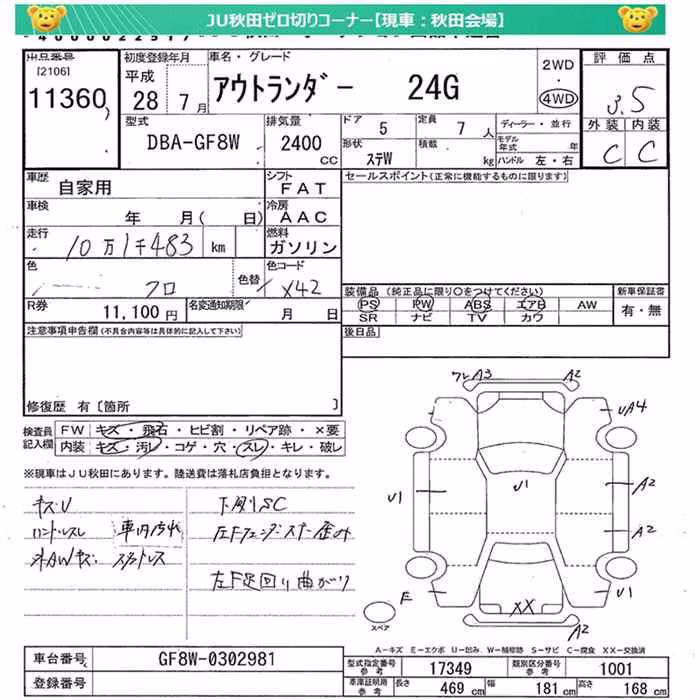 JU秋田ゼロ切りコーナー【現車：秋田会場】
出品番号
[2106]
11360
初度登録年月
平成
28 7月
車名・グレード
アウトランダー 24G
2WD
・
4WD
評価点
3.5
外装 内装
C C
型式
DBA-GF8W
排気量
2400
CC
ドア
5
定員
7 人
ディーラー・並行
モデル年式 年
形状
ステW
積載
kg
ハンドル 左・右
車歴
自家用
シフト
FAT
セールスポイント(正常に機能するものに限ります)
車検
年 月( 日)
冷房
AAC
走行
10万1千483 km
燃料
ガソリン
色
クロ
色替
色コード
X42
R券
11,100 円
名変通知期限
月 日
装備品 (純正品に限り○をつけてください)
PS PW ABS エアB AW
SR ナビ TV カワ
新車保証書
有・無
後日品
注意事項申告欄(不具合内容等は具体的に記入して下さい)
修復歴 有〔箇所 〕
検査員記入欄
FW キズ・飛石・ヒビ割・リペア跡・×要
内装 キズ・汚レ・コゲ・穴・スレ・キレ・破レ
※現車はJU秋田にあります。陸送費は落札店負担となります。
キズU
ハンドルスレ 車内汚れ
外AWキズ スタットレス
下廻りSC
左Fフェンダーステー歪み
左F足回り曲がり
ワレA3 A2
UA4
U1 U1 A2
A2
E XX U1
A2
スペア
A-キズ E-エクボ U-凹み W-補修跡 S-サビ C-腐食 XX-交換済
車台番号 GF8W-0302981
登録番号
型式指定番号参考 17349 類別区分番号参考 1001
車庫証明用参考 長さ 469 cm 幅 181 cm 高さ 168 cm